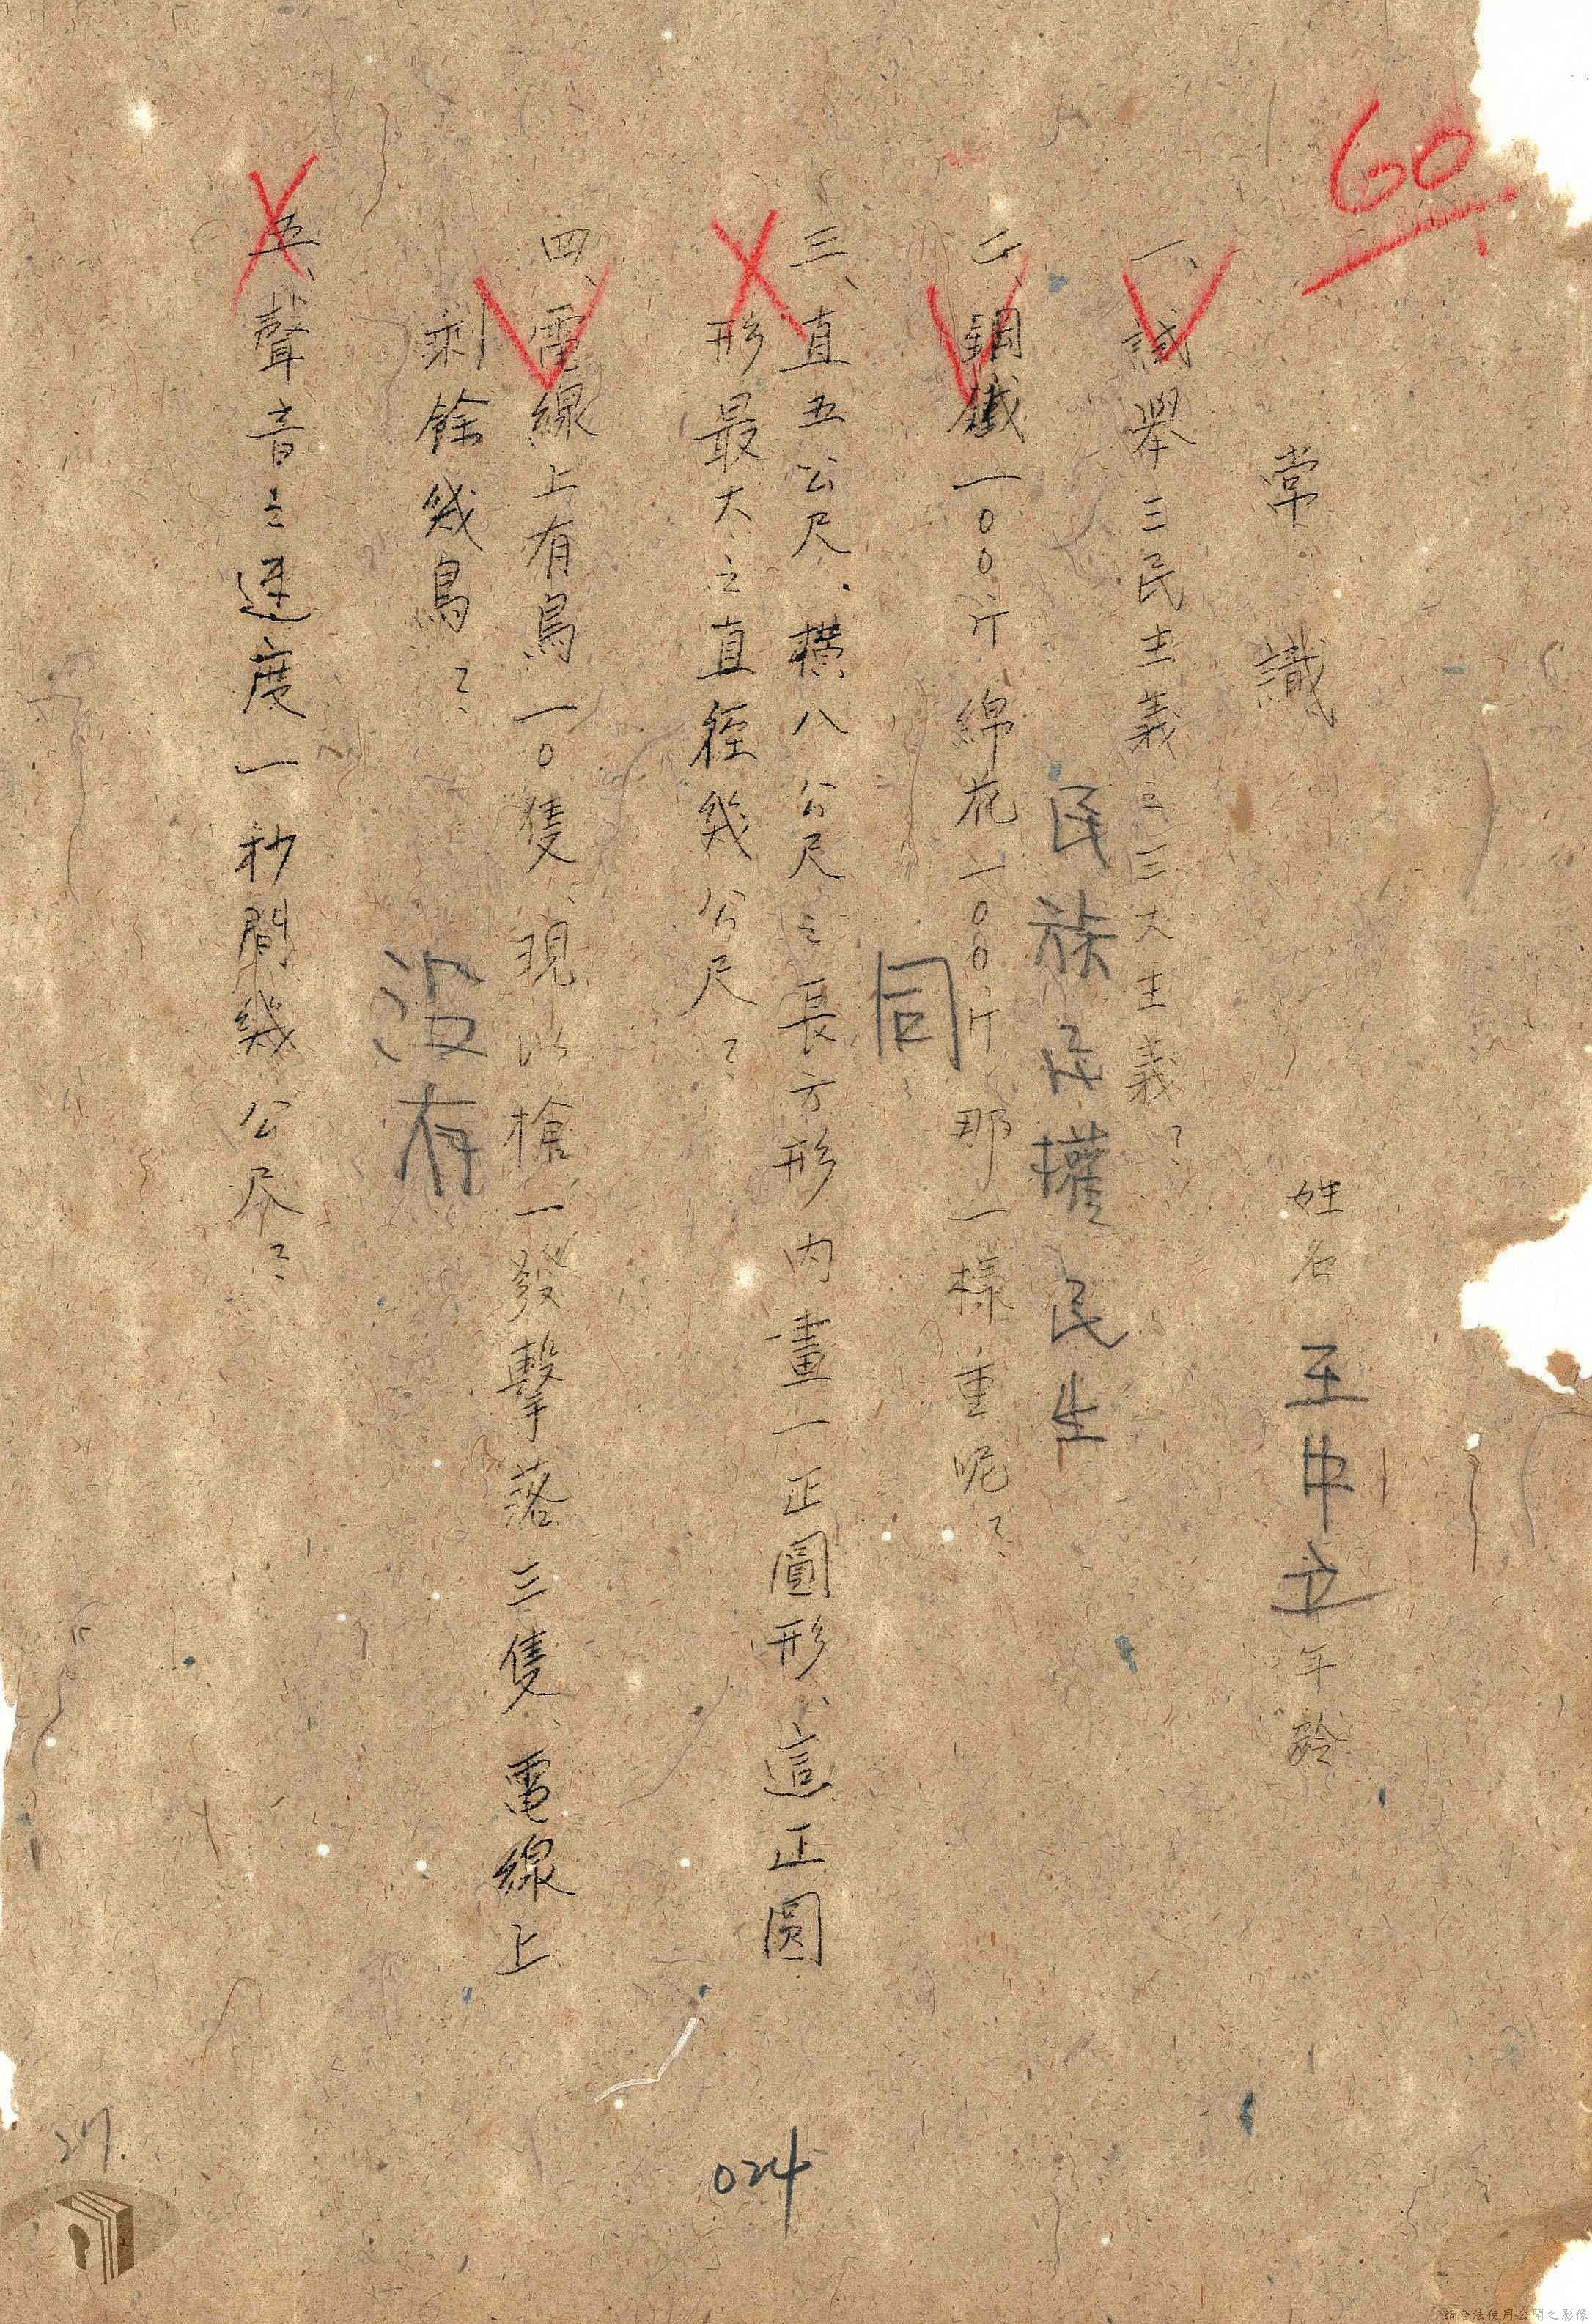 60
常識
姓名 王中立 年齡
一、試舉三民主義之三大主義？
民族民權民生
二、鋼鐵一00斤綿花一00斤那一樣重呢？
同
三、直五公尺．橫八公尺之長方形內畫一正圓形、這正圓
形最大之直徑幾公尺？
四、電線上有鳥一0隻、現以槍一發擊落三隻、電線上
剩餘幾鳥？
沒有
五、聲音之速度一秒間幾公尺？
024
27